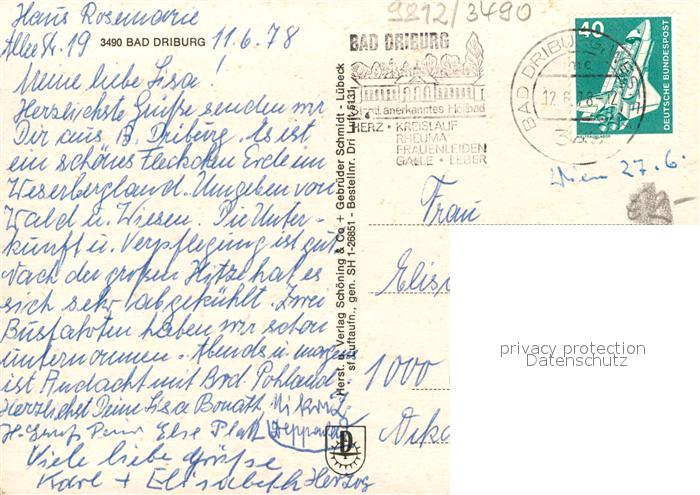 Haus Rosemarie
Allee Str. 19 3490 BAD DRIBURG 11.6.78
Meine liebe Lisa!
Herzlichste Grüße senden wir
Dir aus B. Driburg. Es ist
ein schönes Fleckchen Erde im
Weserbergland. Umgeben von
Wald u. Wiesen. Die Unter-
kunft u. Verpflegung ist gut.
Nach der großen Hitze hat es
sich sehr abgekühlt. Zwei
Busfahrten haben wir schon
unternommen. Abends u. morgens
ist Andacht mit Brd. Pohland.
Herzlichst Deine Lisa Bonath,
Else
Viele liebe Grüße
Karl + Elisabeth Herzog
Herst. u. Verlag Schöning & Co + Gebrüder Schmidt - Lübeck
sf Luftaufn., gen. SH 1-26851 - Bestellnr. Dri Luft 5131
9812/3490
BAD DRIBURG
staatl. anerkanntes Heilbad
HERZ · KREISLAUF
RHEUMA
FRAUENLEIDEN
GALLE · LEBER
BAD DRIBURG
12.6.78
40
DEUTSCHE BUNDESPOST
27.6.
Frau
1000
privacy protection
Datenschutz
D